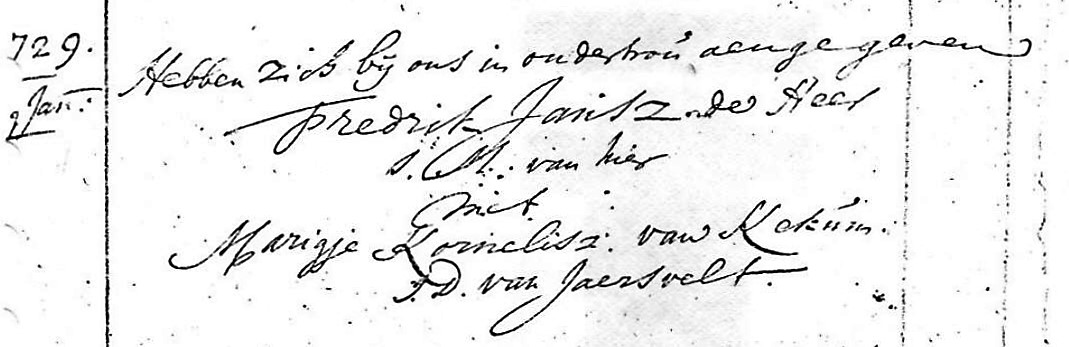 729.
2 Jan:
Hebben zich by ons in ondertroú aengegeven
Fredrik Jansz de Heer
J. M. van hier
met
Marigje Kornelisz. van Kekúm.
J. D. van Jaersvelt.